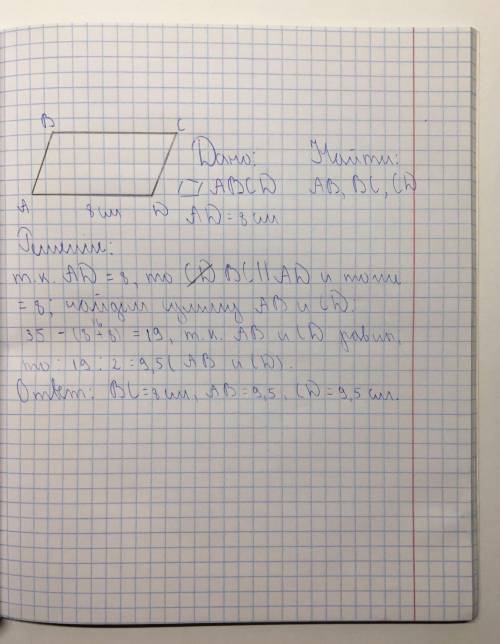 B C
Дано: Найти:
ABCD AB, BC, CD
A 8 см D AD = 8 см
Решение:
т.к. AD = 8, то BC || AD и тоже
= 8; найдём сумму AB и CD:
35 - (8 + 8) = 19, т.к. AB и CD равны,
то: 19 : 2 = 9,5 (AB и CD).
Ответ: BC = 8 см, AB = 9,5, CD = 9,5 см.